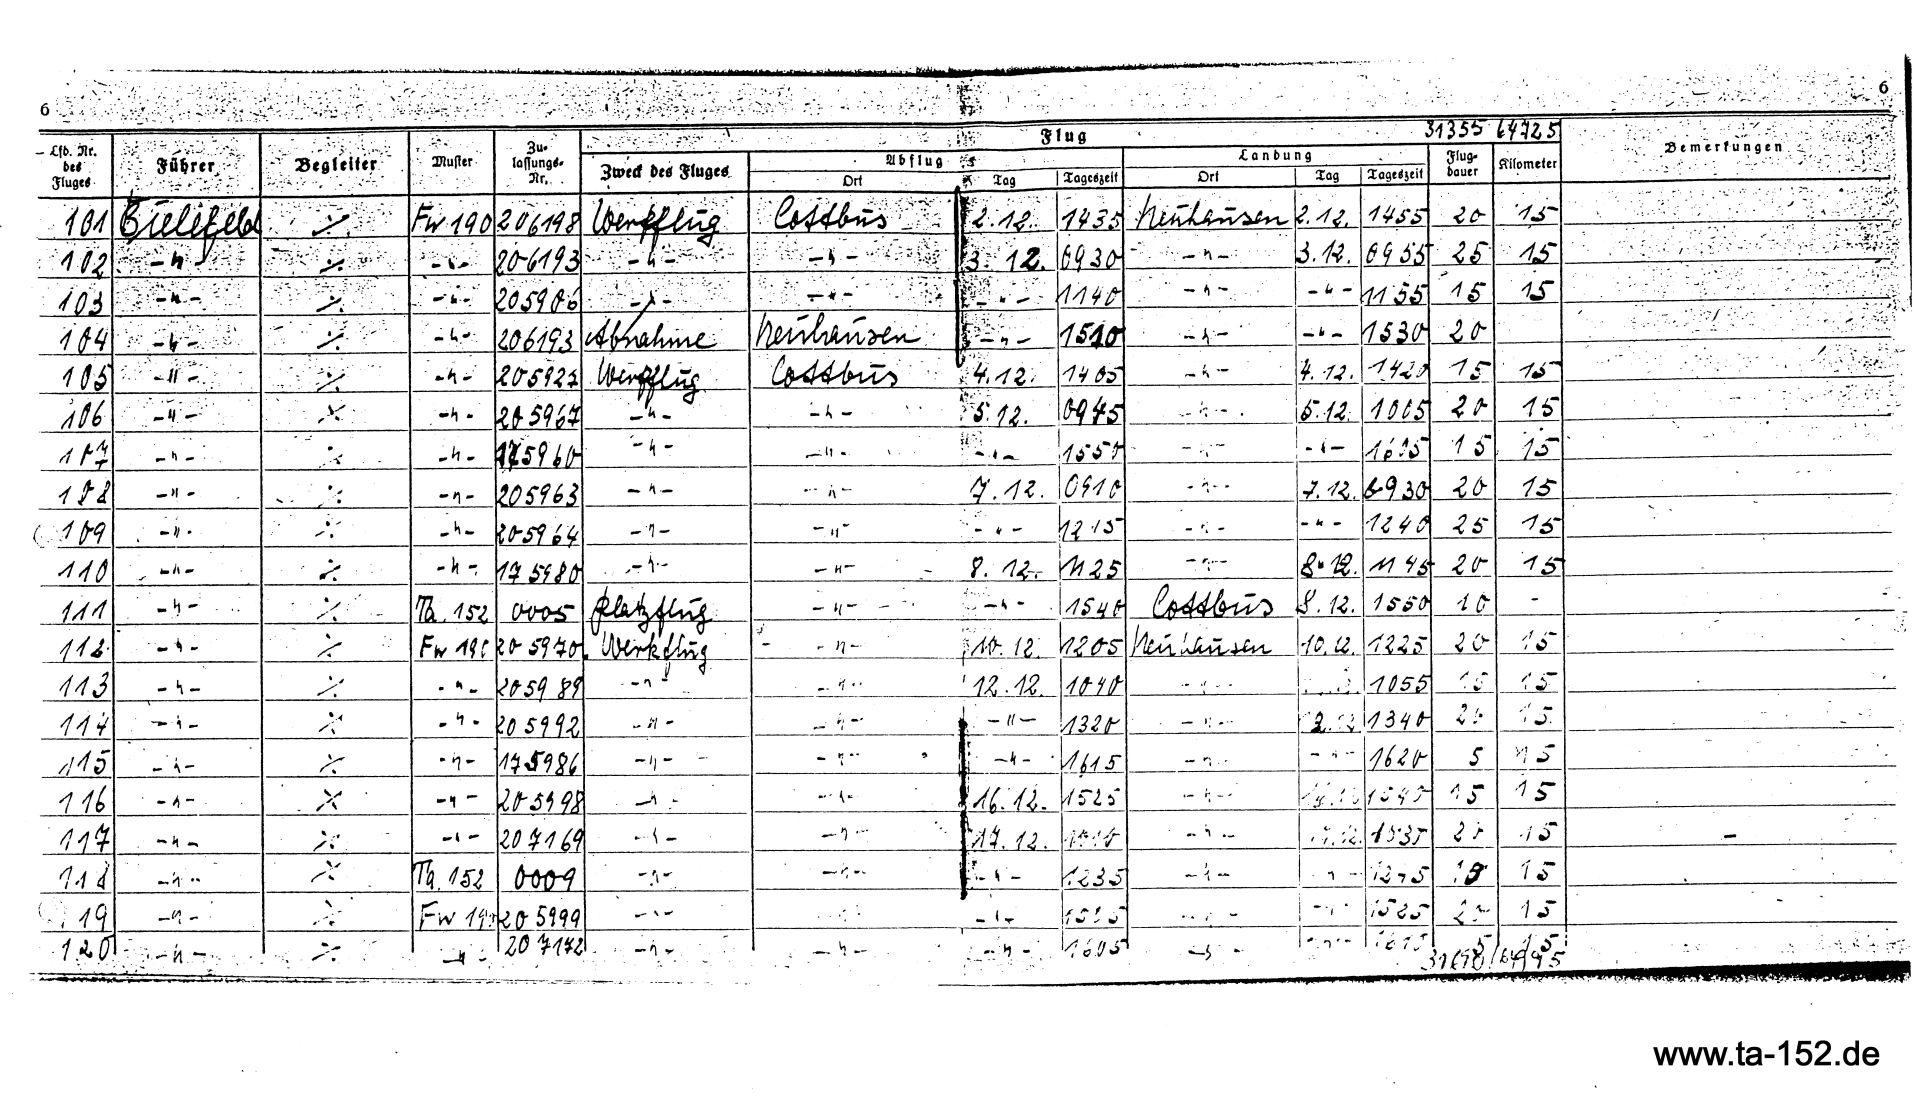 6 6
31355 64725
Lfd. Nr. des Fluges Führer Begleiter Muster Zulassungs-Nr. Zweck des Fluges Flug Abflug Ort Tag Tageszeit Landung Ort Tag Tageszeit Flugdauer Kilometer Bemerkungen
101 Bielefeld ./. Fw 190 206198 Werkflug Cottbus 2.12. 1435 Neuhausen 2.12. 1455 20 15
102 -"- ./. -"- 206193 -"- -"- 3.12. 0930 -"- 3.12. 0955 25 15
103 -"- ./. -"- 205906 -"- -"- -"- 1140 -"- -"- 1155 15 15
104 -"- ./. -"- 206193 Abnahme Neuhausen -"- 1510 -"- -"- 1530 20
105 -"- ./. -"- Werkflug Cottbus 4.12. 1405 -"- 4.12. 1420 15 15
106 -"- ./. -"- 205967 -"- -"- 5.12. 0945 -"- 5.12. 1005 20 15
107 -"- ./. -"- 175960 -"- -"- -"- 1550 -"- -"- 1605 15 15
108 -"- ./. -"- 205963 -"- -"- 7.12. 0910 -"- 7.12. 0930 20 15
109 -"- ./. -"- 205964 -"- -"- -"- 1215 -"- -"- 1240 25 15
110 -"- ./. -"- 175980 -"- -"- 8.12. 1125 -"- 8.12. 1145 20 15
111 -"- ./. Ta. 152 0005 Platzflug -"- -"- 1540 Cottbus 8.12. 1550 10 -
112 -"- ./. Fw 190 205970 Werkflug -"- 10.12. 1205 Neuhausen 10.12. 1225 20 15
113 -"- ./. -"- 205989 -"- -"- 12.12. 1040 -"- 1055 15 15
114 -"- ./. -"- 205992 -"- -"- -"- 1320 -"- 1340 20 15
115 -"- ./. -"- 175986 -"- -"- -"- 1615 -"- -"- 1620 5 15
116 -"- ./. -"- 205998 -"- -"- 16.12. 1525 -"- 1540 15 15
117 -"- ./. -"- 207169 -"- -"- 17.12. -"- 20 15 -
118 -"- ./. Ta. 152 0009 -"- -"- -"- 1235 -"- -"- 15
119 -"- ./. Fw 190 205999 -"- -"- -"- -"- -"- 1525 15
120 -"- ./. -"- 207172 -"- -"- -"- 1605 -"- -"- 5 15
www.ta-152.de